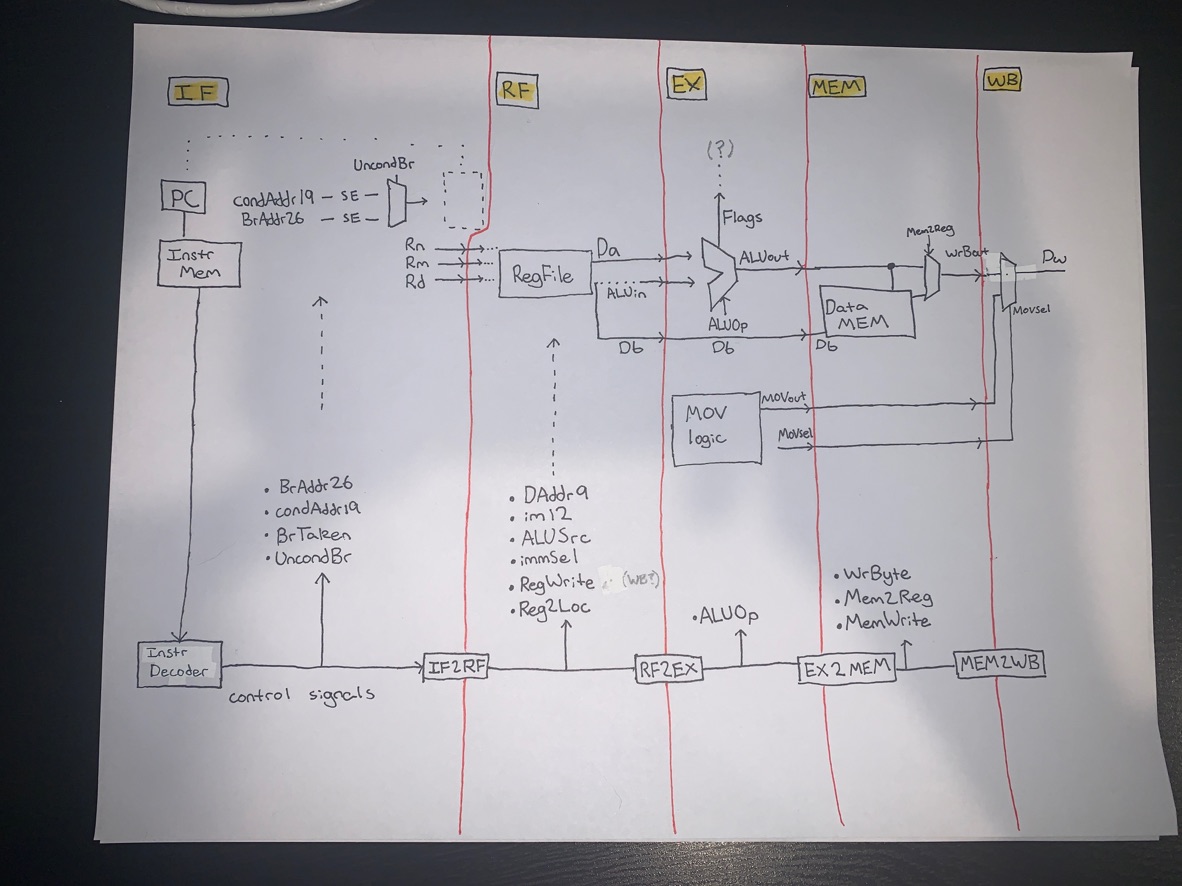 IF
RF
EX
MEM
WB
(?)
UncondBr
PC
condAddr19 — SE —
BrAddr26 — SE —
Flags
Instr
Mem
Rn
Rm
Rd
RegFile
Da
ALUin
Db
ALUout
ALUOp
Db
Mem2Reg
WrBout
Data
MEM
Db
Dw
Movsel
MOV
logic
MOVout
Movsel
• BrAddr26
• condAddr19
• BrTaken
• UncondBr
• DAddr9
• im12
• ALUSrc
• immSel
• RegWrite (WB?)
• Reg2Loc
• ALUOp
• WrByte
• Mem2Reg
• MemWrite
Instr
Decoder
control signals
IF2RF
RF2EX
EX2MEM
MEM2WB